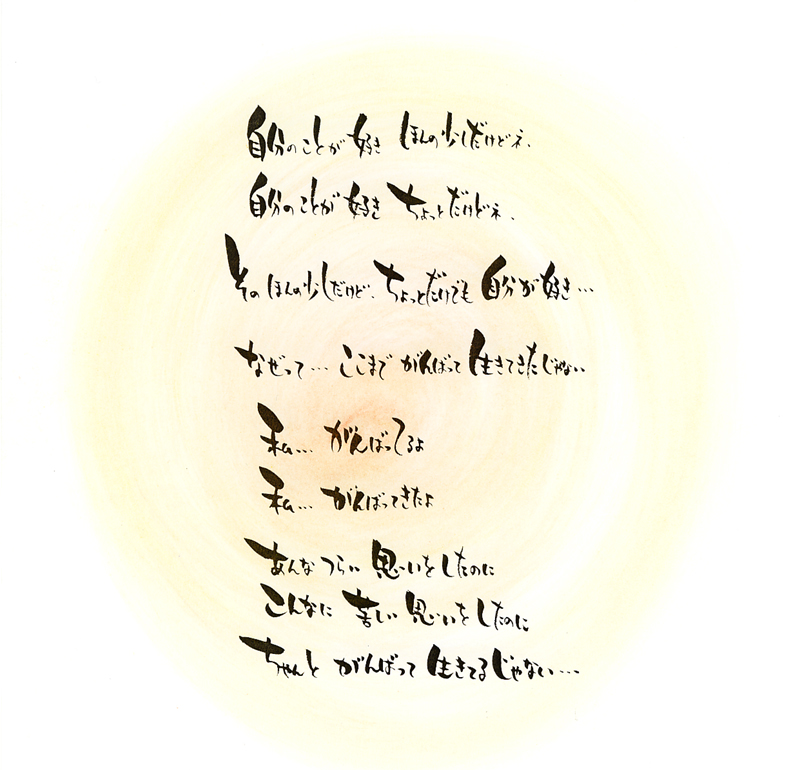 自分のことが 好き ほんの少しだけどネ.
自分のことが 好き ちょっとだけどネ.
その ほんの少しだけど、ちょっとだけでも 自分が好き…
なぜって… ここまで がんばって 生きてきたじゃない
私… がんばってるよ
私… がんばってきたよ
あんな つらい 思いをしたのに
こんなに 苦しい 思いを したのに
ちゃんと がんばって 生きてるじゃない…